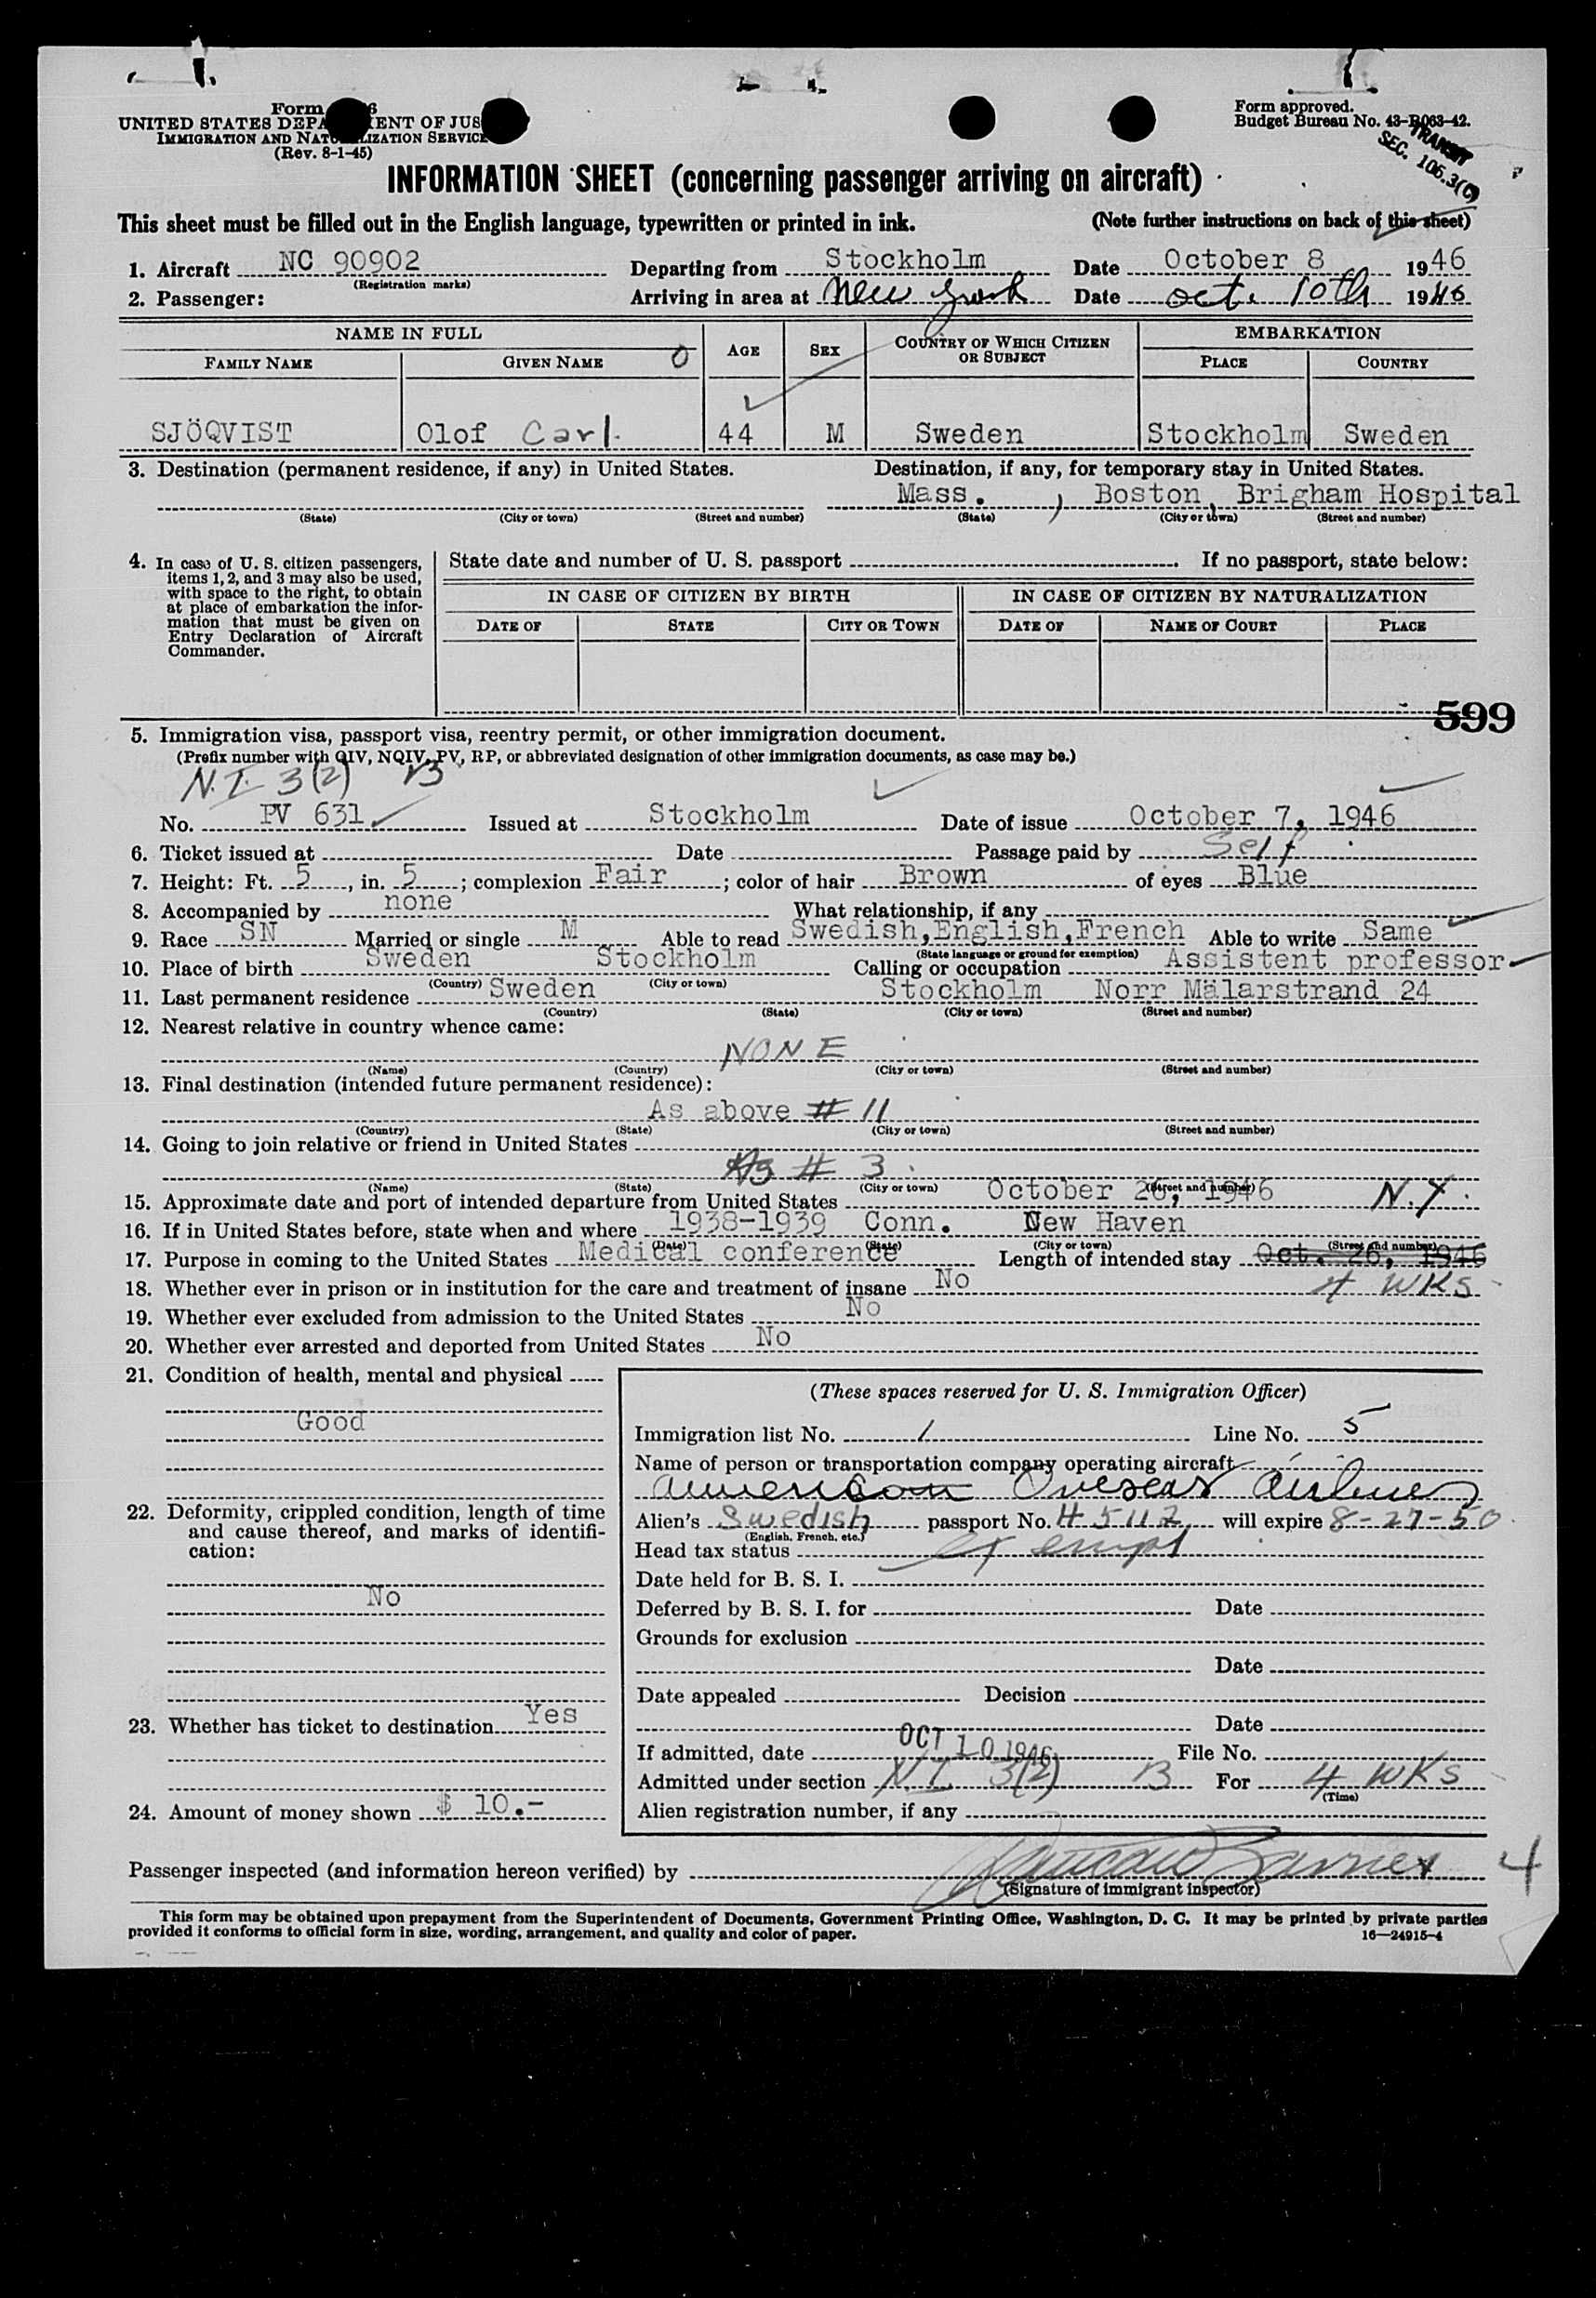 Form 6
UNITED STATES DEPA ENT OF JUS
IMMIGRATION AND NATU LIZATION SERVICE
(Rev. 8-1-45)
Form approved.
Budget Bureau No. 43-R063-42.
TRANSIT
SEC. 106.3(C)
INFORMATION SHEET (concerning passenger arriving on aircraft)
This sheet must be filled out in the English language, typewritten or printed in ink. (Note further instructions on back of this sheet)
1. Aircraft NC 90902 Departing from Stockholm Date October 8 1946
(Registration marks)
2. Passenger: Arriving in area at New York Date Oct. 10th 1946
NAME IN FULL AGE SEX COUNTRY OF WHICH CITIZEN OR SUBJECT EMBARKATION
FAMILY NAME GIVEN NAME 0 PLACE COUNTRY
SJÖQVIST Olof Carl. 44 M Sweden Stockholm Sweden
3. Destination (permanent residence, if any) in United States. Destination, if any, for temporary stay in United States.
Mass. , Boston, Brigham Hospital
(State) (City or town) (Street and number) (State) (City or town) (Street and number)
4. In case of U. S. citizen passengers, items 1, 2, and 3 may also be used, with space to the right, to obtain at place of embarkation the information that must be given on Entry Declaration of Aircraft Commander.
State date and number of U. S. passport If no passport, state below:
IN CASE OF CITIZEN BY BIRTH IN CASE OF CITIZEN BY NATURALIZATION
DATE OF STATE CITY OR TOWN DATE OF NAME OF COURT PLACE
599
5. Immigration visa, passport visa, reentry permit, or other immigration document.
(Prefix number with QIV, NQIV, PV, RP, or abbreviated designation of other immigration documents, as case may be.)
N.I. 3(2) B
No. PV 631 Issued at Stockholm Date of issue October 7, 1946
6. Ticket issued at Date Passage paid by Self
7. Height: Ft. 5, in. 5; complexion Fair; color of hair Brown of eyes Blue
8. Accompanied by none What relationship, if any
9. Race SN Married or single M Able to read Swedish,English,French Able to write Same
(State language or ground for exemption)
10. Place of birth Sweden Stockholm Calling or occupation Assistent professor
(Country) (City or town)
11. Last permanent residence Sweden Stockholm Norr Mälarstrand 24
(Country) (State) (City or town) (Street and number)
12. Nearest relative in country whence came:
NONE
(Name) (Country) (City or town) (Street and number)
13. Final destination (intended future permanent residence):
As above # 11
(Country) (State) (City or town) (Street and number)
14. Going to join relative or friend in United States
As # 3
(Name) (State) (City or town) (Street and number)
15. Approximate date and port of intended departure from United States October 26, 1946 N.Y.
16. If in United States before, state when and where 1938-1939 Conn. New Haven
(Date) (State) (City or town) (Street and number)
17. Purpose in coming to the United States Medical conference Length of intended stay Oct. 26, 1946
4 WKS
18. Whether ever in prison or in institution for the care and treatment of insane No
19. Whether ever excluded from admission to the United States No
20. Whether ever arrested and deported from United States No
21. Condition of health, mental and physical
Good
22. Deformity, crippled condition, length of time and cause thereof, and marks of identification:
No
23. Whether has ticket to destination Yes
24. Amount of money shown $ 10.-
(These spaces reserved for U. S. Immigration Officer)
Immigration list No. 1 Line No. 5
Name of person or transportation company operating aircraft
American Overseas Airlines
Alien's Swedish passport No. 45112 will expire 8-27-50
(English, French, etc.)
Head tax status exempt
Date held for B. S. I.
Deferred by B. S. I. for Date
Grounds for exclusion
Date
Date appealed Decision
Date
If admitted, date OCT 10 1946 File No.
Admitted under section N.I. 3(2) B For 4 WKS
(Time)
Alien registration number, if any
Passenger inspected (and information hereon verified) by 4
(Signature of immigrant inspector)
This form may be obtained upon prepayment from the Superintendent of Documents, Government Printing Office, Washington, D. C. It may be printed by private parties
provided it conforms to official form in size, wording, arrangement, and quality and color of paper. 16—24915-4